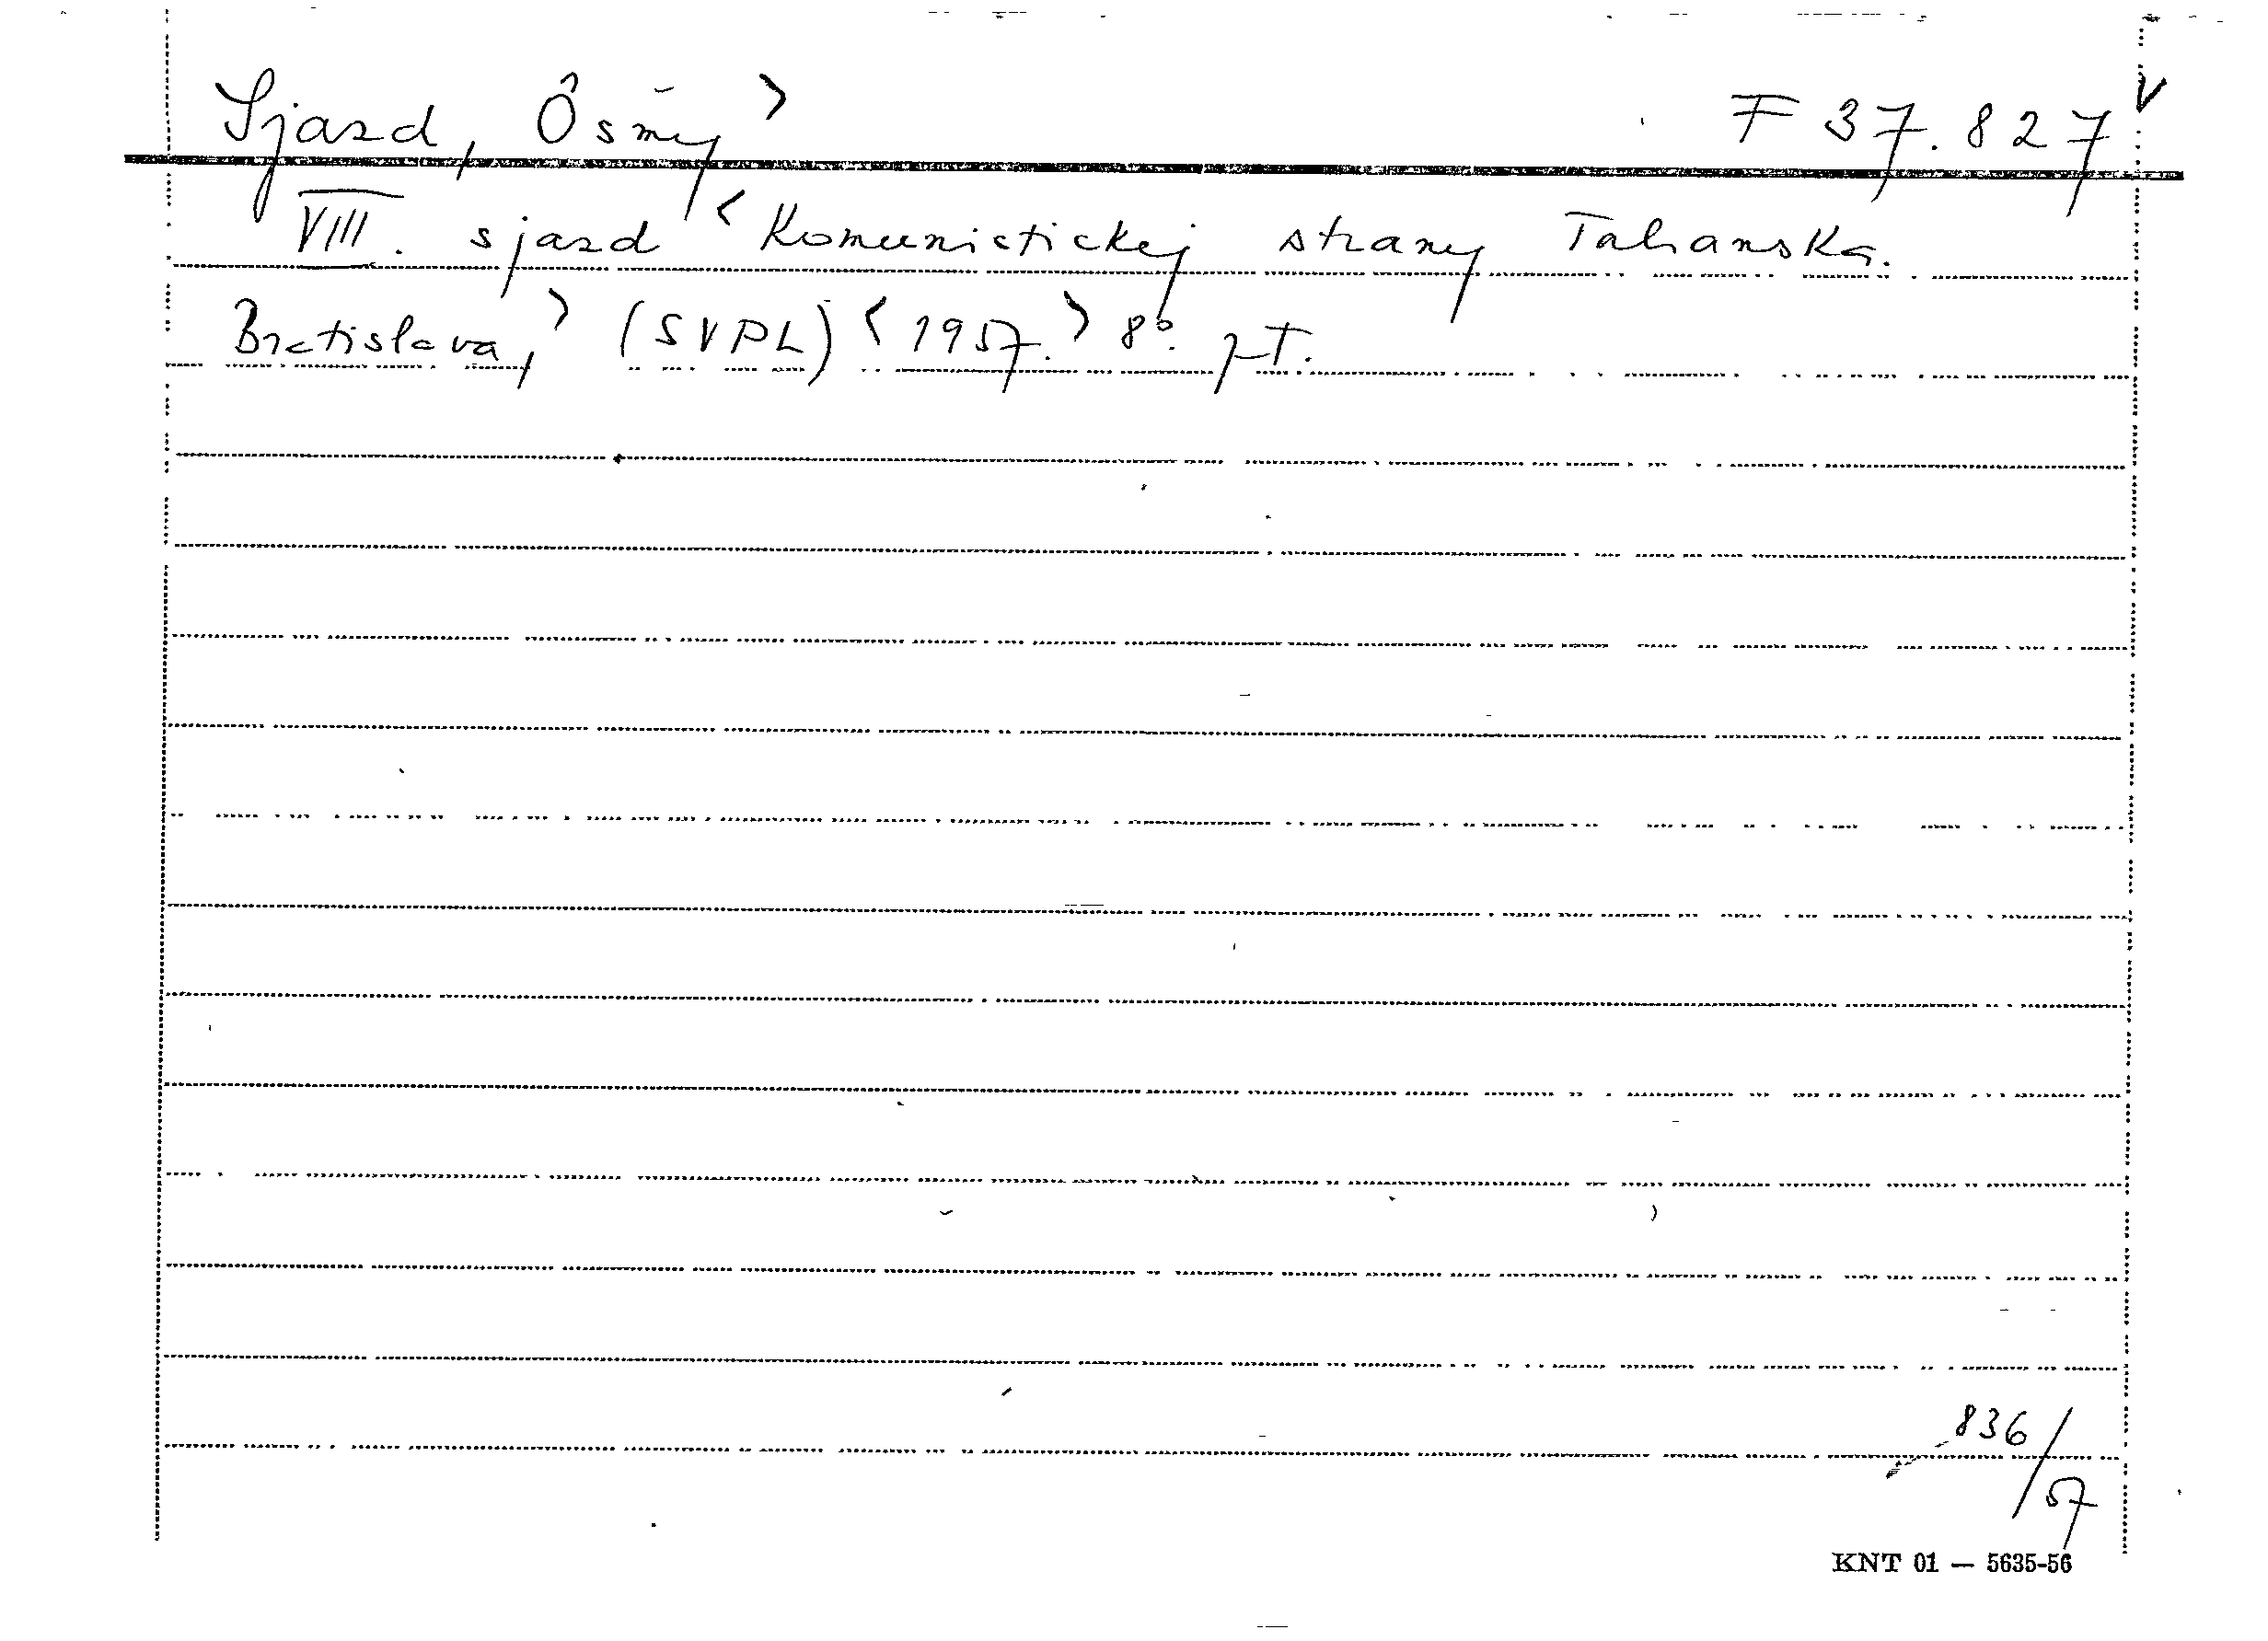 Sjazd, Ôsmy > F 37.827 V
VIII. sjazd < Komunistickej strany Talianska.
Bratislava, > (SVPL) < 1957. > 8° pT.
836/57
KNT 01 — 5635-56